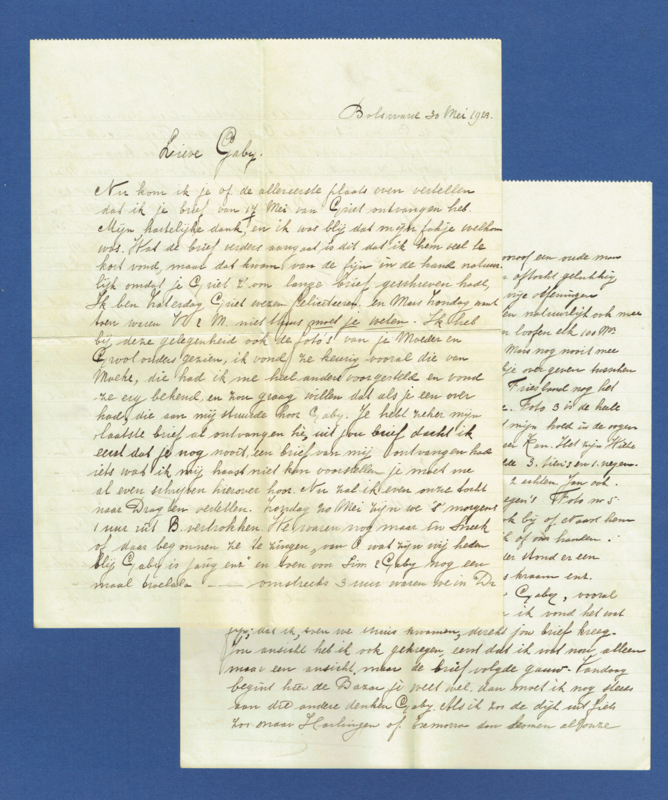 Bolsward 30 Mei 19
Lieve Gaby.
Nu kom ik je op de allereerste plaats even vertellen
dat ik je brief van 17 Mei van Griet ontvangen heb.
Mijn hartelijke dank, en ik was blij dat mijn fotootje welkom
was. Wat de brief verders aangaat, is dit dat ik hem veel te
kort vond, maar dat kwam van de fijn in de hand natuur-
lijk omdat je Griet z'om lange brief geschreven had,
Ik ben Zaterdag Griet wezen feliciteeren, en Mars Zondag want
toen waren W & M. niet thuis moet je weten. Ik heb
bij deze gelegenheid ook de foto's van je Moeder en
Grootouders gezien, ik vond ze keurig vooral die van
Moeke, die had ik me heel anders voorgesteld en vond
ze erg bekend, en zou graag willen dat als je een over
had, die aan mij stuurde hoor Gaby. Je hebt zeker mijn
laatste brief al ontvangen hè, uit jou brief dacht ik
eerst dat je nog nooit een brief van mij ontvangen had
iets wat ik mij haast niet kon voorstellen, je moet me
al even schrijven hierover hoor. Nu zal ik even onze tocht
naar Dragten vertellen. Zondag 20 Mei zijn we 's morgens
1 uur uit B. vertrokken. We waren nog maar in Sneek
of daar begonnen ze te zingen, van O wat zijn wij heden
blij Gaby is jarig enz" en toen van Sim & Gaby nog een
maal tralala — omstreeks 3 uur waren we in Dr
een oude man
aftocht gelukkig
oefeningen
en natuurlijk ook mee
loopen elk 100 Mr.
Mars nog nooit mee
je overgeven tusschen
Friesland nog het
. Foto 3 is de hale
mijn hoed in de regen
een Kan. Het zijn Wille
3. tier's en 1. regen.
2 achter Jan ook.
Foto nr 5.
ik bij of naast hem
of om handen.
stond er een
kraam enz.
Gaby, vooral
ik vond het wat
fijn, dat ik, toen we thuis kwamen, direkt jou brief kreeg.
Jou ansicht heb ik ook gekregen, eerst dat ik wat nou, alleen
maar een ansicht, maar de brief volgde gauw. Vandaag
begint hier de Bazar je weet wel. dan moet ik nog steeds
aan die andere denken Gaby. Als ik zoo de dijk uit fiets
zoo naar Harlingen of tramorra dan komen al onze